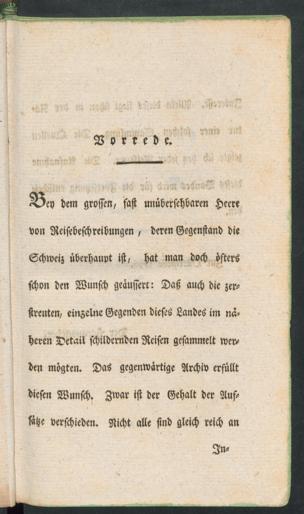 Vorrede.
Bey dem grossen, fast unübersehbaren Heere
von Reisebeschreibungen, deren Gegenstand die
Schweiz überhaupt ist, hat man doch öfters
schon den Wunsch geäussert: Daß auch die zer-
streuten, einzelne Gegenden dieses Landes im nä-
heren Detail schildernden Reisen gesammelt wer-
den mögten. Das gegenwärtige Archiv erfüllt
diesen Wunsch. Zwar ist der Gehalt der Auf-
sätze verschieden. Nicht alle sind gleich reich an
In-